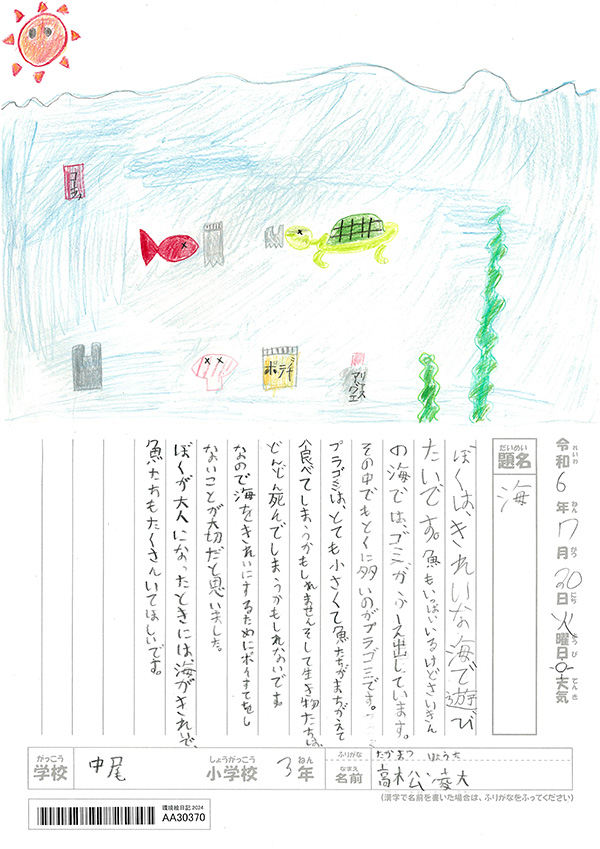 コーラ
ポテチ
令和6年7月30日火曜日天気
題名
海
ぼくは、きれいな海で遊び
たいです。魚もいっぱいいるけどさいきん
の海では、ゴミがふえ出しています。
その中でもとくに多いのがプラゴミです。
プラゴミは、とても小さくて魚たちがまちがえて
食べてしまうかもしれませんそして生き物たちは、
どんどん死んでしまうかもしれないです。
なので海をきれいにするためにポイすてをし
ないことが大切だと思いました。
ぼくが大人になったときには海がきれいで、
魚たちもたくさんいてほしいです。
がっこう しょうがっこう ねん ふりがな たかまつ りょうた
学校 中尾 小学校 3年 名前 高松凌大
(漢字で名前を書いた場合は、ふりがなをふってください)
環境絵日記 2024
AA30370